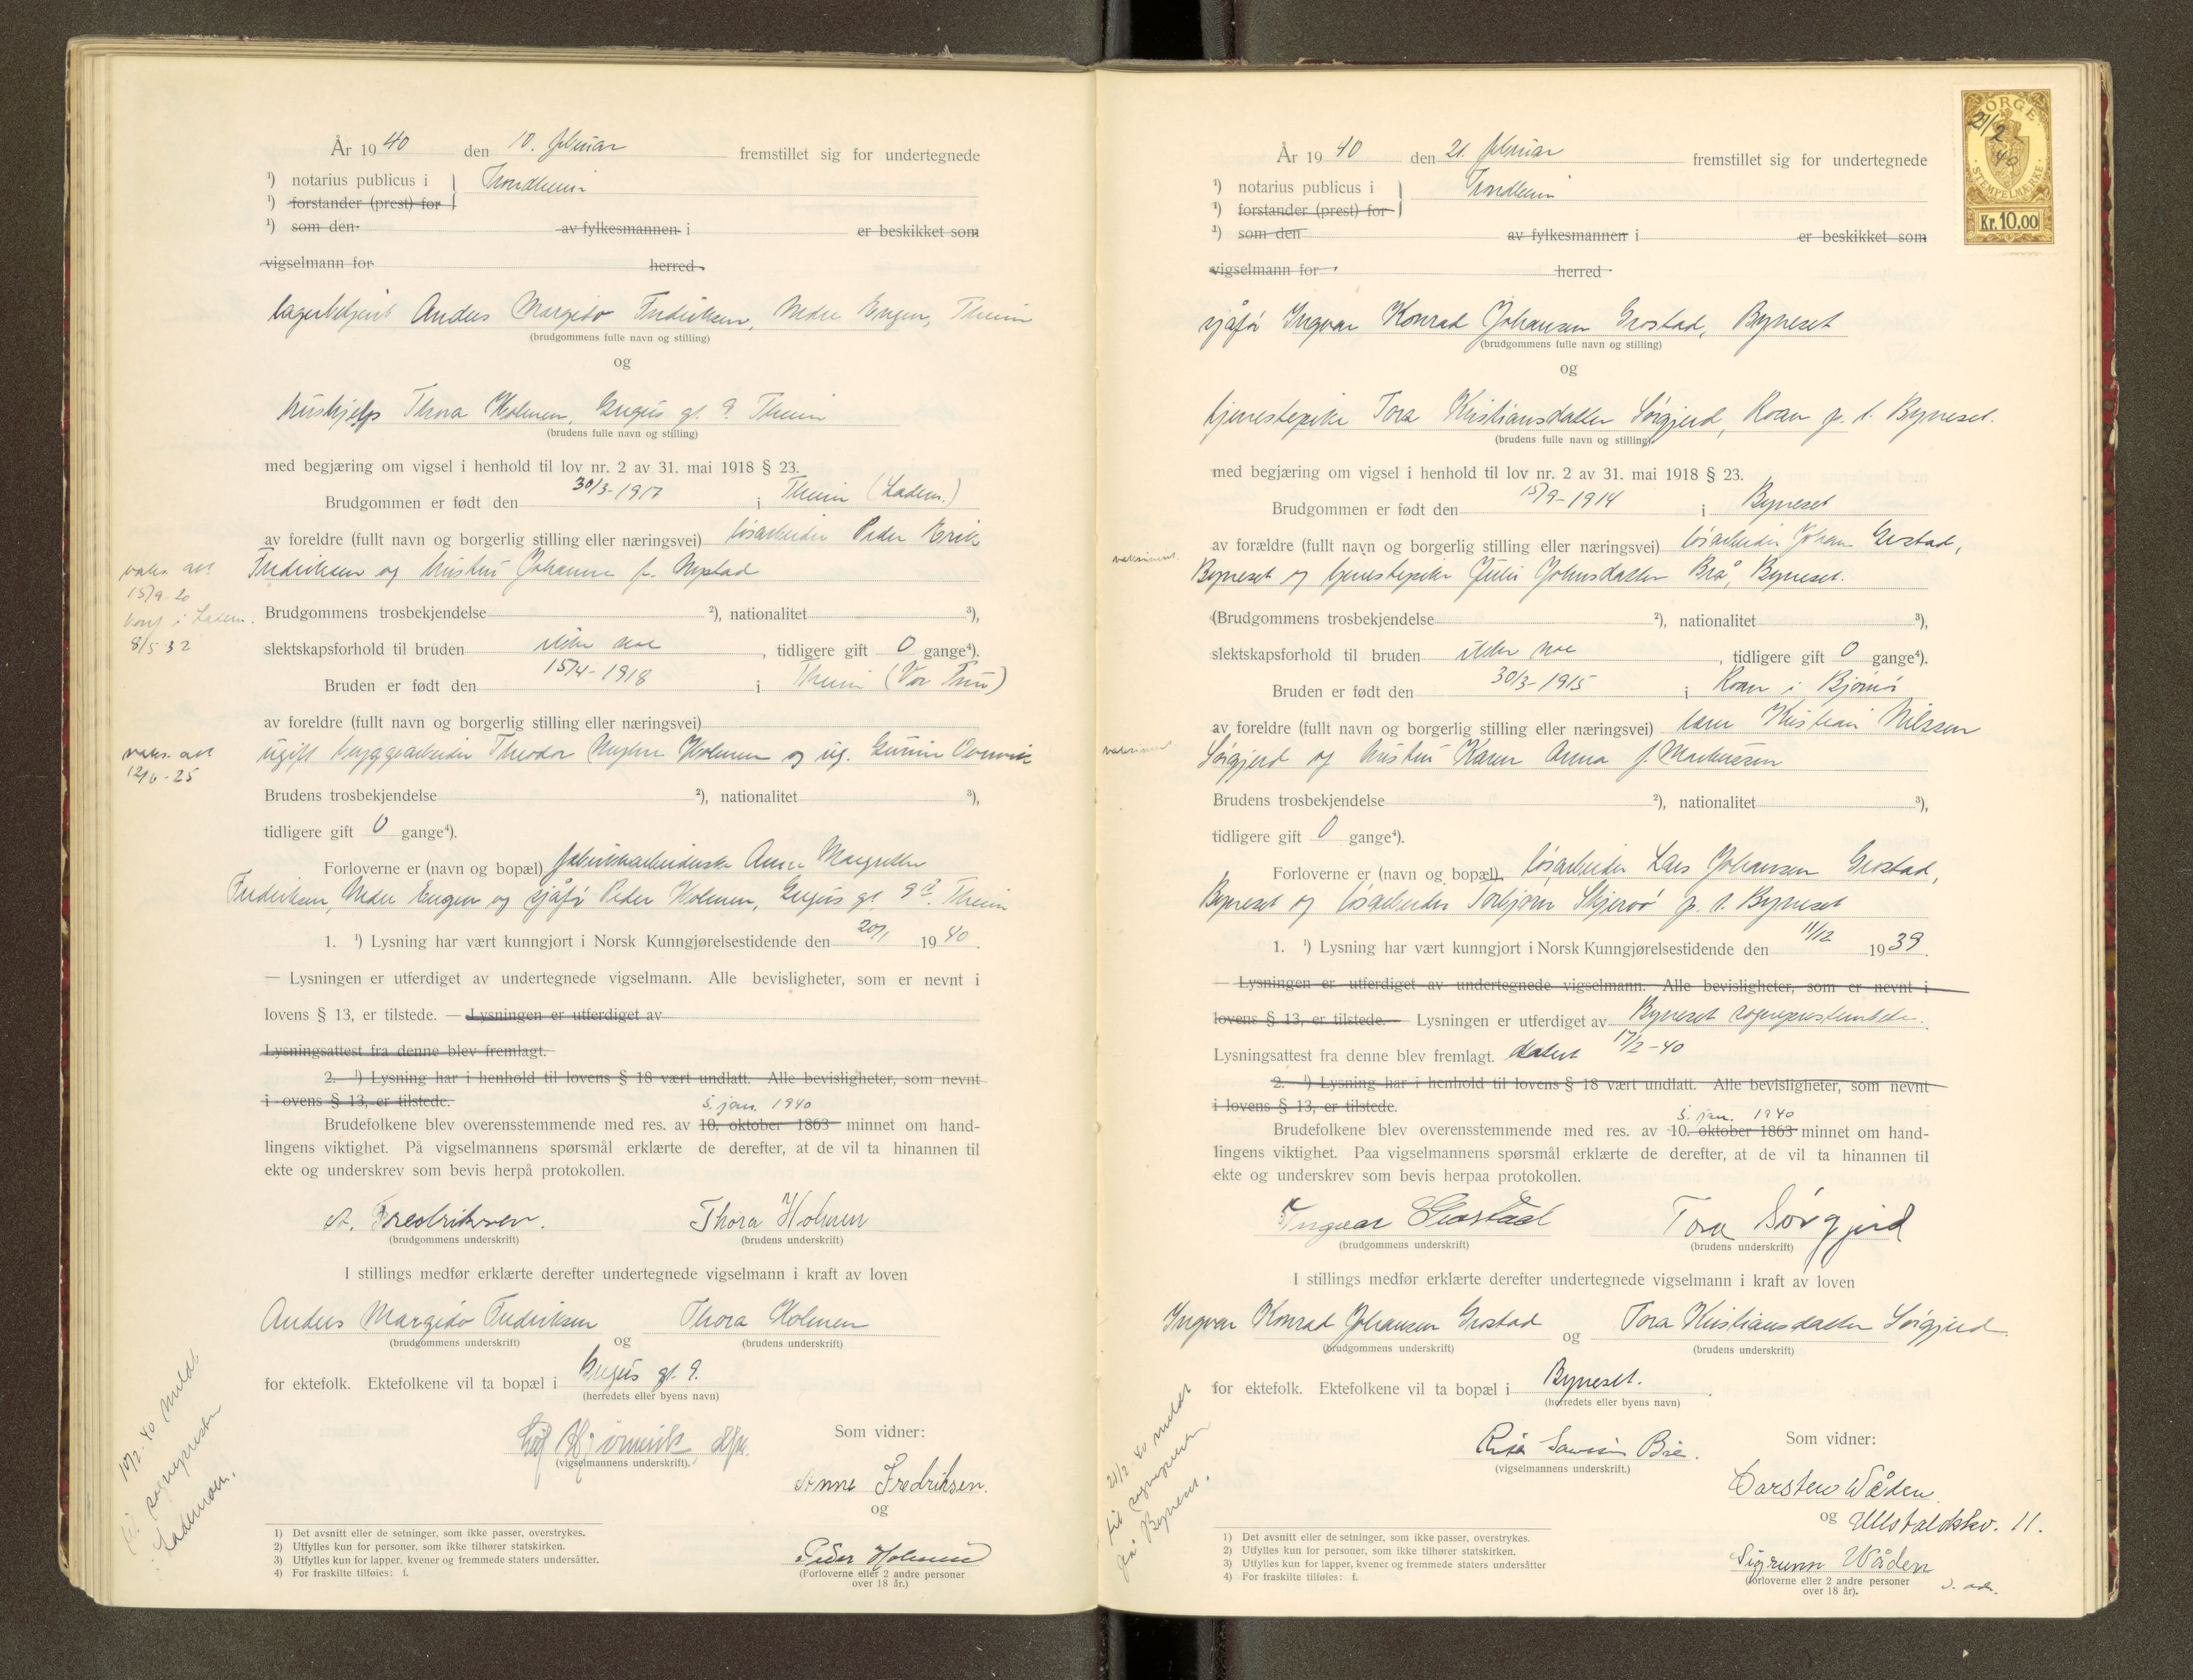 År 1940 den 10. februar fremstillet sig for undertegnede
¹) notarius publicus i } Trondheim
¹) forstander (prest) for
¹) som den av fylkesmannen i er beskikket som
vigselmann for herred
lagerbetjent Anders Margido Fredriksen, Nedre Engen, Theim
(brudgommens fulle navn og stilling)
og
hushjelp Thora Holmen, gt. 9. Theim
(brudens fulle navn og stilling)
med begjæring om vigsel i henhold til lov nr. 2 av 31. mai 1918 § 23.
Brudgommen er født den 30/3-1917 i Theim (Ladem.)
av foreldre (fullt navn og borgerlig stilling eller næringsvei) løsarbeider Peder Erik
Fredriksen og hustru Johanna f. Mystad
vaks. att
15/9-20
konf i Ladem.
8/5 32
Brudgommens trosbekjendelse ²), nationalitet ³),
slektskapsforhold til bruden ikke noe, tidligere gift 0 gange⁴).
Bruden er født den 15/4-1918 i Theim (Vor Frue)
av foreldre (fullt navn og borgerlig stilling eller næringsvei)
ugift bryggearbeider Theodor Holmen og ug.
vaks. att
12/6-25
Brudens trosbekjendelse ²), nationalitet ³),
tidligere gift 0 gange⁴).
Forloverne er (navn og bopæl) fabrikkarbeiderske Anne Margrethe
Fredriksen, Nedre Engen og sjåfør Peder Holmen, gt. 9 Theim
1. ¹) Lysning har vært kunngjort i Norsk Kunngjørelsestidende den 20/1 1940.
— Lysningen er utferdiget av undertegnede vigselmann. Alle bevisligheter, som er nevnt i
lovens § 13, er tilstede. — Lysningen er utferdiget av
Lysningsattest fra denne blev fremlagt.
2. ¹) Lysning har i henhold til lovens § 18 vært undlatt. Alle bevisligheter, som nevnt
i ovens § 13, er tilstede.
5. jan. 1940
Brudefolkene blev overensstemmende med res. av 10. oktober 1863 minnet om hand-
lingens viktighet. På vigselmannens spørsmål erklærte de derefter, at de vil ta hinannen til
ekte og underskrev som bevis herpå protokollen.
A. Fredriksen. Thora Holmen
(brudgommens underskrift) (brudens underskrift)
I stillings medfør erklærte derefter undertegnede vigselmann i kraft av loven
Anders Margido Fredriksen og Thora Holmen
(brudgommens underskrift) (brudens underskrift)
for ektefolk. Ektefolkene vil ta bopæl i gt. 9.
(herredets eller byens navn)
(vigselmannens underskrift).
Som vidner:
Anne Fredriksen.
og
Peder Holmen
(Forloverne eller 2 andre personer
over 18 år.)
10/2-40 meldt
til sognepresten
Lademoen.
1) Det avsnitt eller de setninger, som ikke passer, overstrykes.
2) Utfylles kun for personer, som ikke tilhører statskirken.
3) Utfylles kun for lapper, kvener og fremmede staters undersåtter.
4) For fraskilte tilføies: f.
NORGE
21/2 40
STEMPELMÆRKE
Kr. 10,00
År 1940 den 21. februar fremstillet sig for undertegnede
¹) notarius publicus i } Trondheim
¹) forstander (prest) for
¹) som den av fylkesmannen i er beskikket som
vigselmann for herred
sjåfør Ingvar Konrad Johansen Grostad, Byneset
(brudgommens fulle navn og stilling)
og
tjenestepike Tora Kristiansdatter Sørgjerd, Roan p. t. Byneset.
(brudens fulle navn og stilling)
med begjæring om vigsel i henhold til lov nr. 2 av 31. mai 1918 § 23.
Brudgommen er født den 15/9-1914 i Byneset
av forældre (fullt navn og borgerlig stilling eller næringsvei) løsarbeider Johan Grostad,
vaksinert.
Byneset og tjenestepike Julie Johnsdatter Brå, Byneset.
(Brudgommens trosbekjendelse ²), nationalitet ³),
slektskapsforhold til bruden ikke noe, tidligere gift 0 gange⁴).
Bruden er født den 30/3-1915 i Roan i Bjørnør
av foreldre (fullt navn og borgerlig stilling eller næringsvei) lærer Kristian Nilssen
vaksinert
Sørgjerd og hustru Karen Anna f. Markussen
Brudens trosbekjendelse ²), nationalitet ³),
tidligere gift 0 gange⁴).
Forloverne er (navn og bopæl) løsarbeider Lars Johansen Grostad,
Byneset og løsarbeider Torbjørn Skjervø p. t. Byneset
1. ¹) Lysning har vært kunngjort i Norsk Kunngjørelsestidende den 11/12 1939.
— Lysningen er utferdiget av undertegnede vigselmann. Alle bevisligheter, som er nevnt i
lovens § 13, er tilstede. — Lysningen er utferdiget av Byneset sogneprestembete.
Lysningsattest fra denne blev fremlagt. datert 17/2-40
2. ¹) Lysning har i henhold til lovens § 18 vært undlatt. Alle bevisligheter, som nevnt
i lovens § 13, er tilstede.
5. jan. 1940
Brudefolkene blev overensstemmende med res. av 10. oktober 1863 minnet om hand-
lingens viktighet. Paa vigselmannens spørsmål erklærte de derefter, at de vil ta hinannen til
ekte og underskrev som bevis herpaa protokollen.
Ingvar Grostad Tora Sørgjerd
(brudgommens underskrift) (brudens underskrift)
I stillings medfør erklærte derefter undertegnede vigselmann i kraft av loven
Ingvar Konrad Johansen Grostad og Tora Kristiansdatter Sørgjerd.
(brudgommens underskrift) (brudens underskrift)
for ektefolk. Ektefolkene vil ta bopæl i Byneset.
(herredets eller byens navn)
(vigselmannens underskrift.)
Som vidner:
Carsten Wåden.
og Ullstadlokkv. 11.
Sigrunn Wåden
(forloverne eller 2 andre personer
over 18 år).
s. adr.
21/2-40 meldt
til sognepresten
på Byneset.
1) Det avsnitt eller de setninger, som ikke passer, overstrykes.
2) Utfylles kun for personer, som ikke tilhører statskirken.
3) Utfylles kun for lapper, kvener og fremmede staters undersåtter
4) For fraskilte tilføies: f.